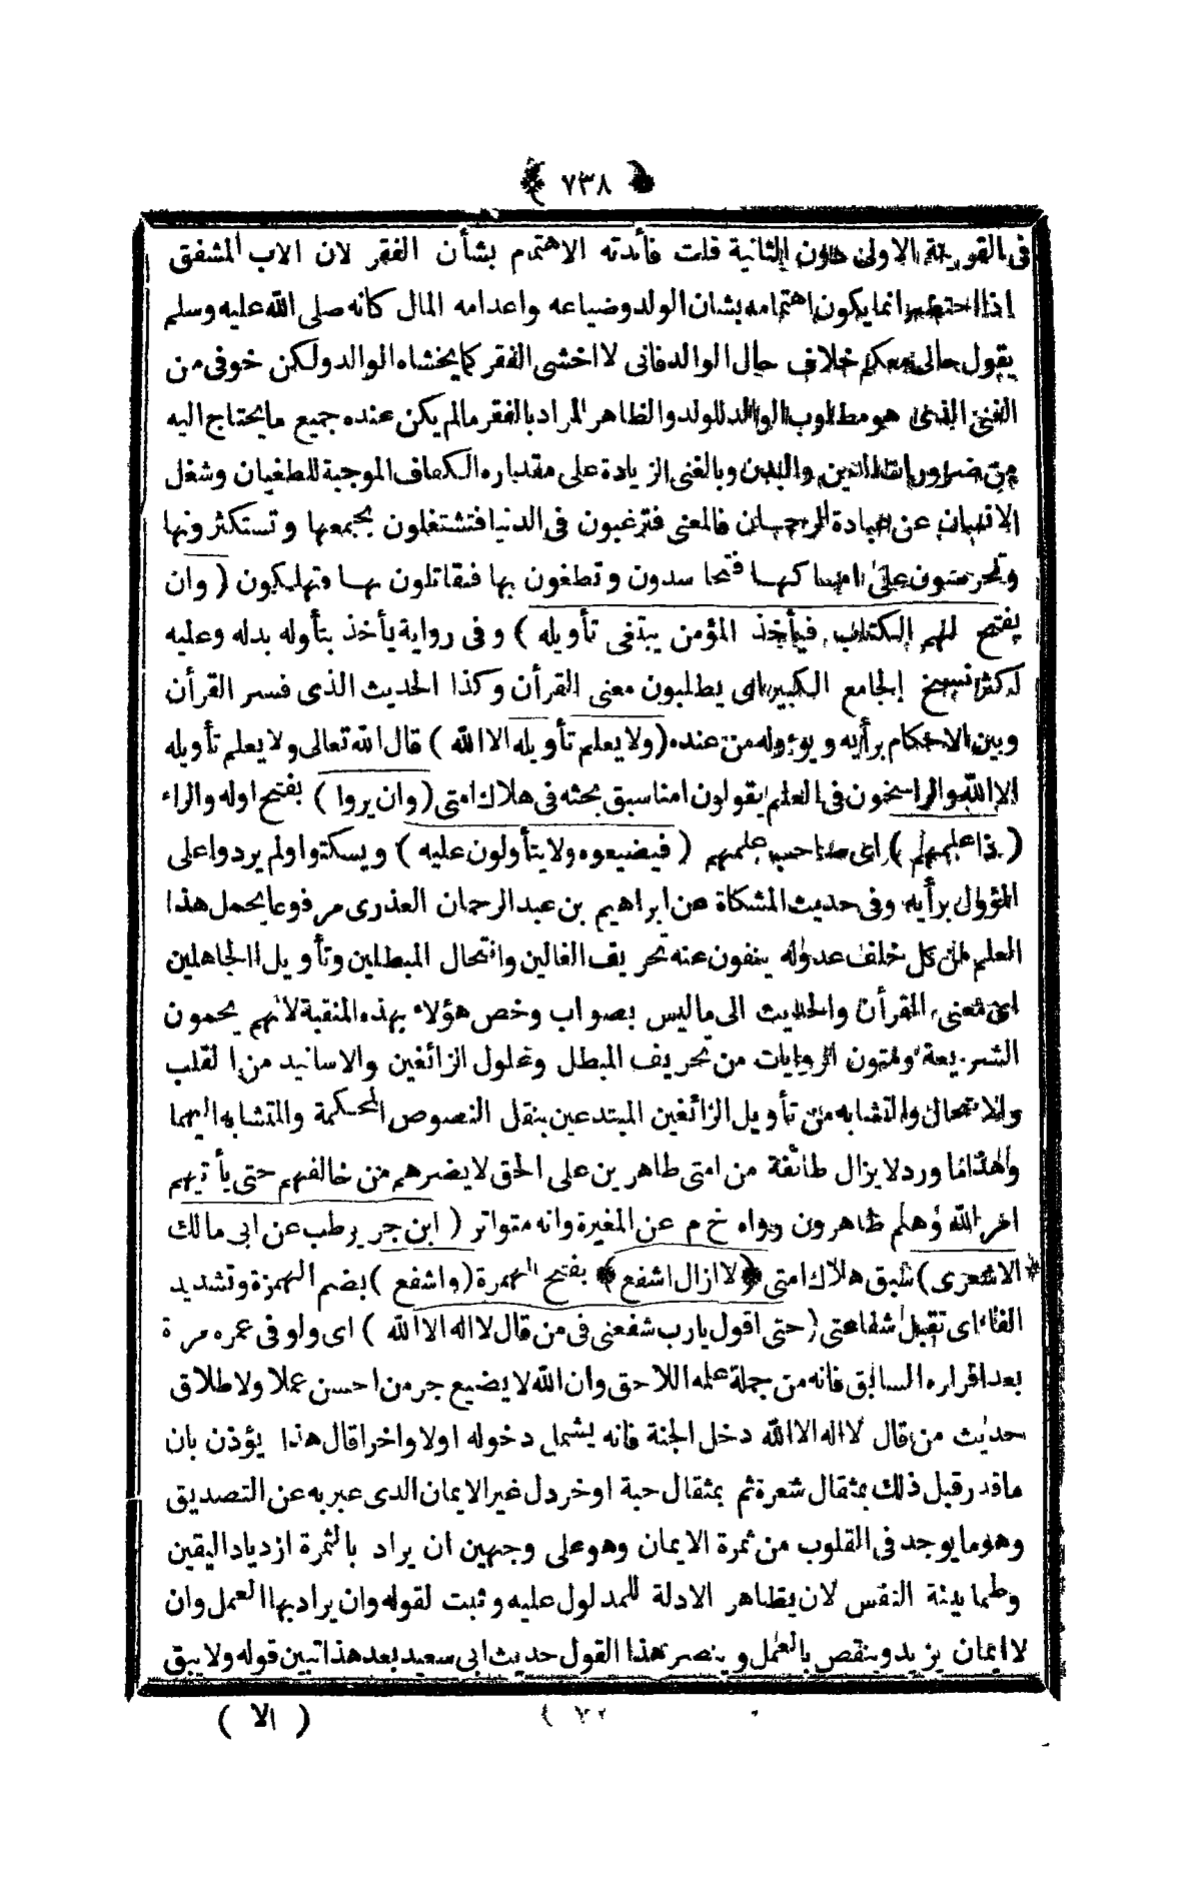 ﴿ ٧٣٨ ﴾
فى القرينة الاولى دون الثانية قلت فأئدته الاهتمام بشأن الفقر لان الاب المشفق
اذا احتضر انما يكون اهتمامه بشان الولد وضياعه واعدامه المال كانه صلى الله عليه وسلم
يقول حالى معكم خلاف حال الوالد فانى لا اخشى الفقر كما يخشاه الوالد ولكن خوفى من
الغنى الذى هو مطلوب الوالد للولد والظاهر المراد بالفقر مالم يكن عنده جميع ما يحتاج اليه
من ضرورات الدين والبدن وبالغنى الزيادة على مقدار الكفاف الموجبة للطغيان وشغل
الانسان عن عبادة الرحمان فالمعنى فترغبون فى الدنيا فتشتغلون بجمعها وتستكثرونها
وتحرصون على امساكها فتحاسدون وتطغون بها فتقاتلون بها فتهلكون ( وان
يفتح لهم الكتاب فيأخذ المؤمن يبتغى تأويله ) وفى رواية يأخذ بتأوله بدله وعليه
اكثر نسخ الجامع الكبير اى يطلبون معنى القرأن وكذا الحديث الذى فسر القرأن
وبين الاحكام برأيه ويؤوله من عنده ( ولا يعلم تأويله الا الله ) قال الله تعالى ولا يعلم تأويله
الا الله والراسخون فى العلم يقولون امنا سبق بحثه فى هلاك امتى ( وان يروا ) بفتح اوله والراء
( ذا علمهم ) اى صاحب علمهم ( فيضيعوه ولا يتأولون عليه ) ويسكتوا ولم يردوا على
المؤول برأيه وفى حديث المشكاة عن ابراهيم بن عبد الرحمان العذرى مرفوعا يحمل هذا
العلم من كل خلف عدوله ينفون عنه تحريف الغالين وانتحال المبطلين وتأويل الجاهلين
اى معنى القرأن والحديث الى ما ليس بصواب وخص هؤلاء بهذه المنقبة لانهم يحمون
الشريعة ومتون الروايات من تحريف المبطل وغلول الزائغين والاسانيد من القلب
والانتحال والتشابه من تأويل الزائغين المبتدعين بنقل النصوص المحكمة والمتشابه اليهما
ولهذا ورد لا يزال طائفة من امتى طاهرين على الحق لا يضرهم من خالفهم حتى يأتيهم
امر الله وهم ظاهرون رواه خ م عن المغيرة وانه متواتر ( ابن جرير طب عن ابى مالك
الاشعرى ) سبق هلاك امتى * ﴿ لا ازال اشفع ﴾ بفتح الهمزة ( واشفع ) بضم الهمزة وتشديد
الفاء اى تقبل شفاعتى ( حتى اقول يارب شفعنى فى من قال لا اله الا الله ) اى ولو فى عمره مرة
بعد اقراره السابق فانه من جملة عمله اللاحق وان الله لا يضيع جر من احسن عملا ولاطلاق
حديث من قال لا اله الا الله دخل الجنة فانه يشمل دخوله اولا واخرا قال هذا يؤذن بان
ما قدر قبل ذلك بمثقال شعرة ثم بمثقال حبة او خردل غير الايمان الدى عبر به عن التصديق
وهو ما يوجد فى القلوب من ثمرة الايمان وهو على وجهين ان يراد بالثمرة ازدياد اليقين
وطمايئة النفس لان يظاهر الادلة للمدلول عليه وثبت لقوله وان يراد بها العمل وان
لا ايمان يزيد وينقص بالعمل وينصر هذا القول حديث ابى سعيد بعد هذا تبين قوله ولا يبق
( الا )